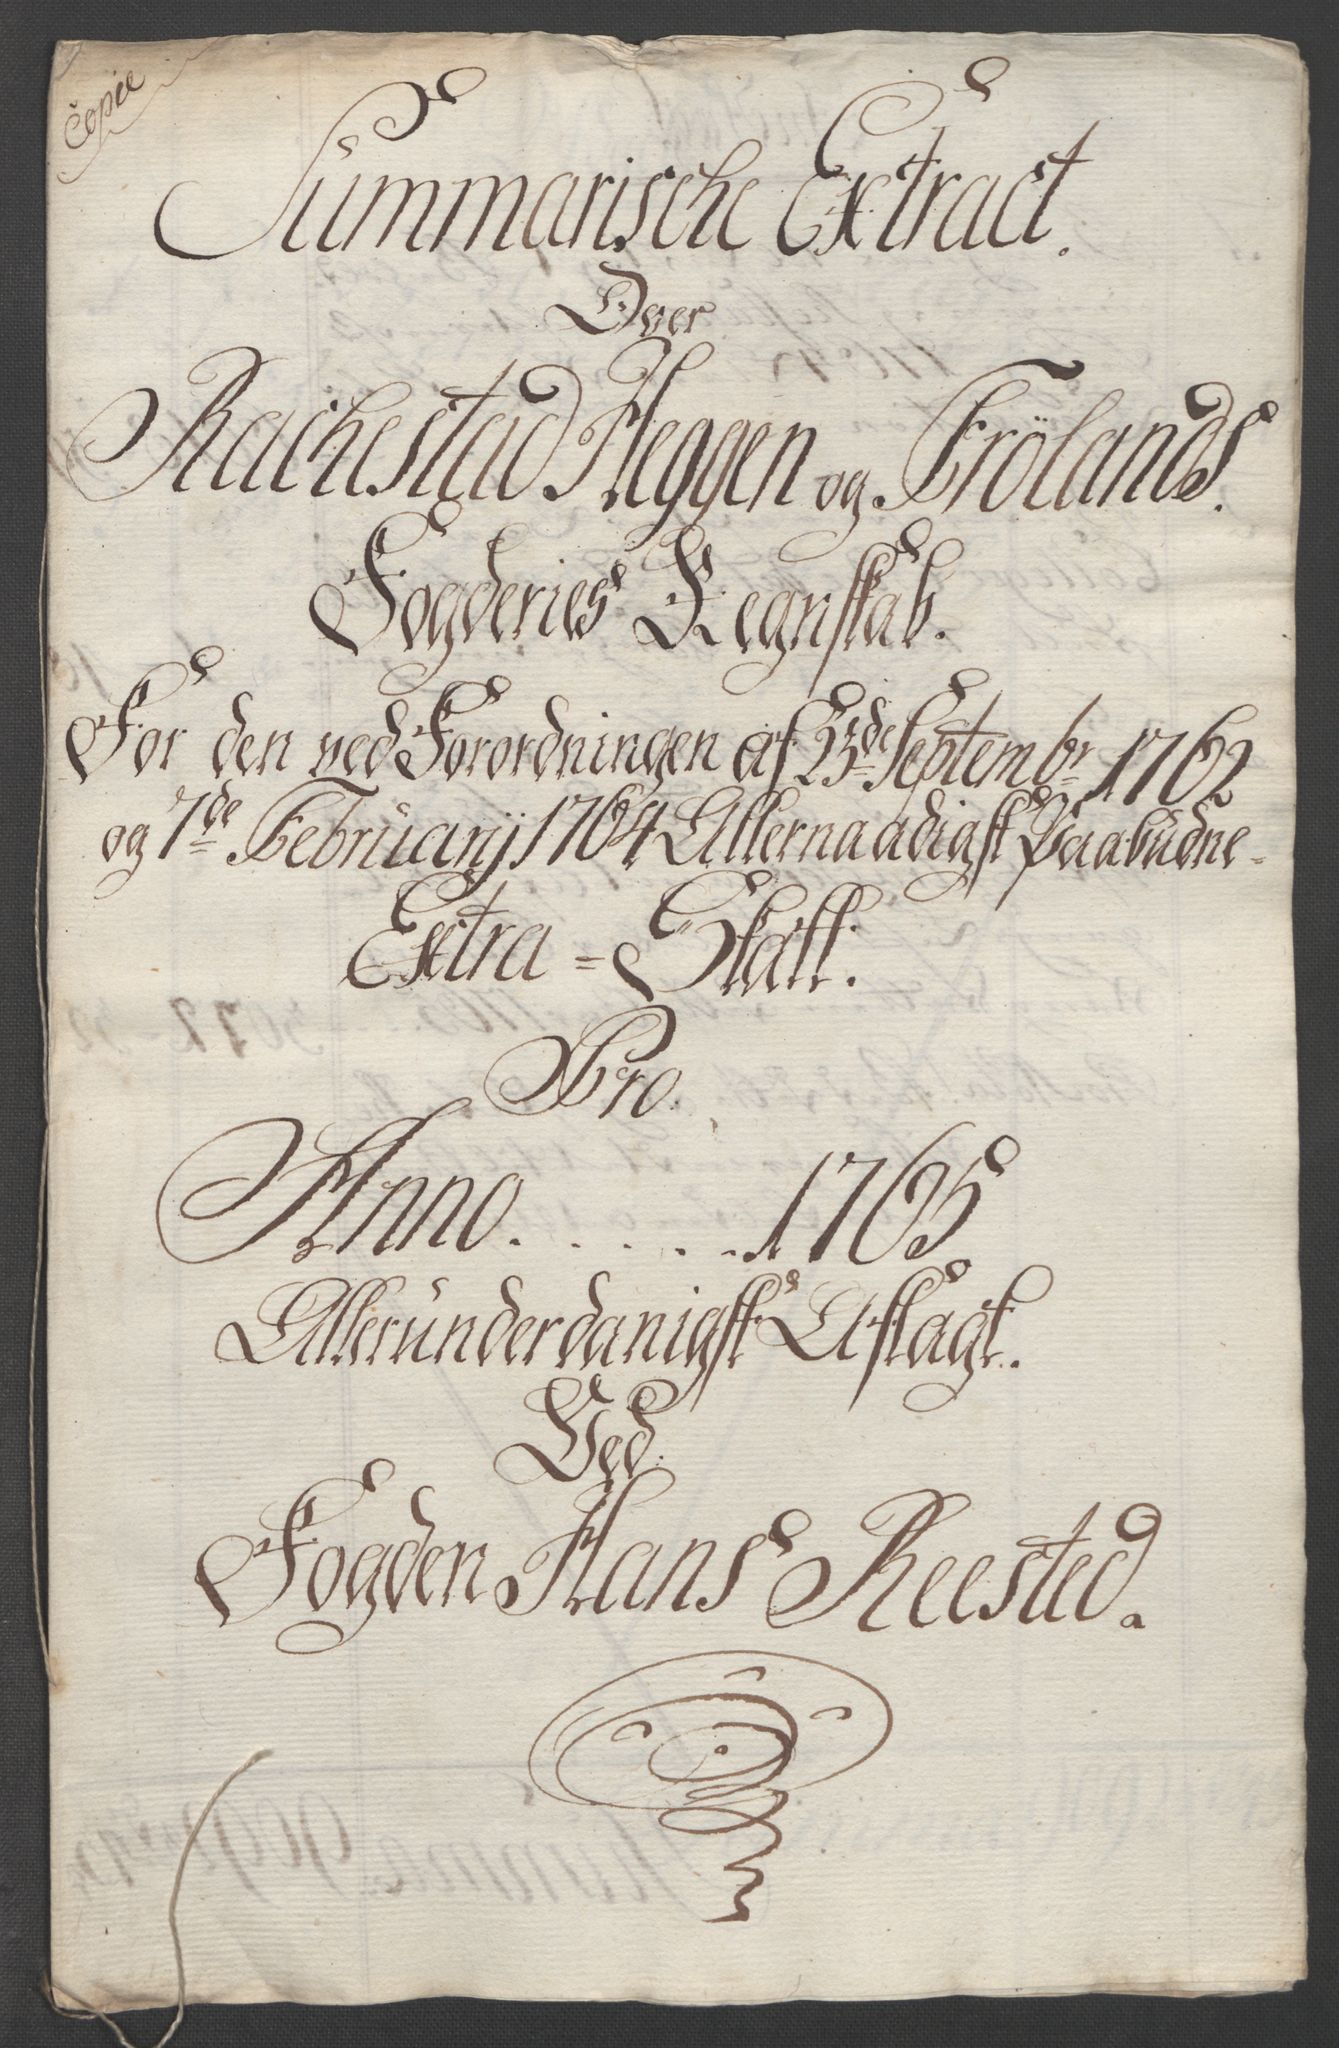 Copie
Summarische Extract.
Over
Rachestad Heggen og Frölands
Fogderies Regnskab.
For den ved Forordningen af 23de Septembr 1762
og 7de Februarij 1764 Allernaadigst Paabudne
Extra-Skatt.
Pro.
Anno......1765
Allerunderdanigst Aflagt.
Ved.
Fogden Hans Reested.